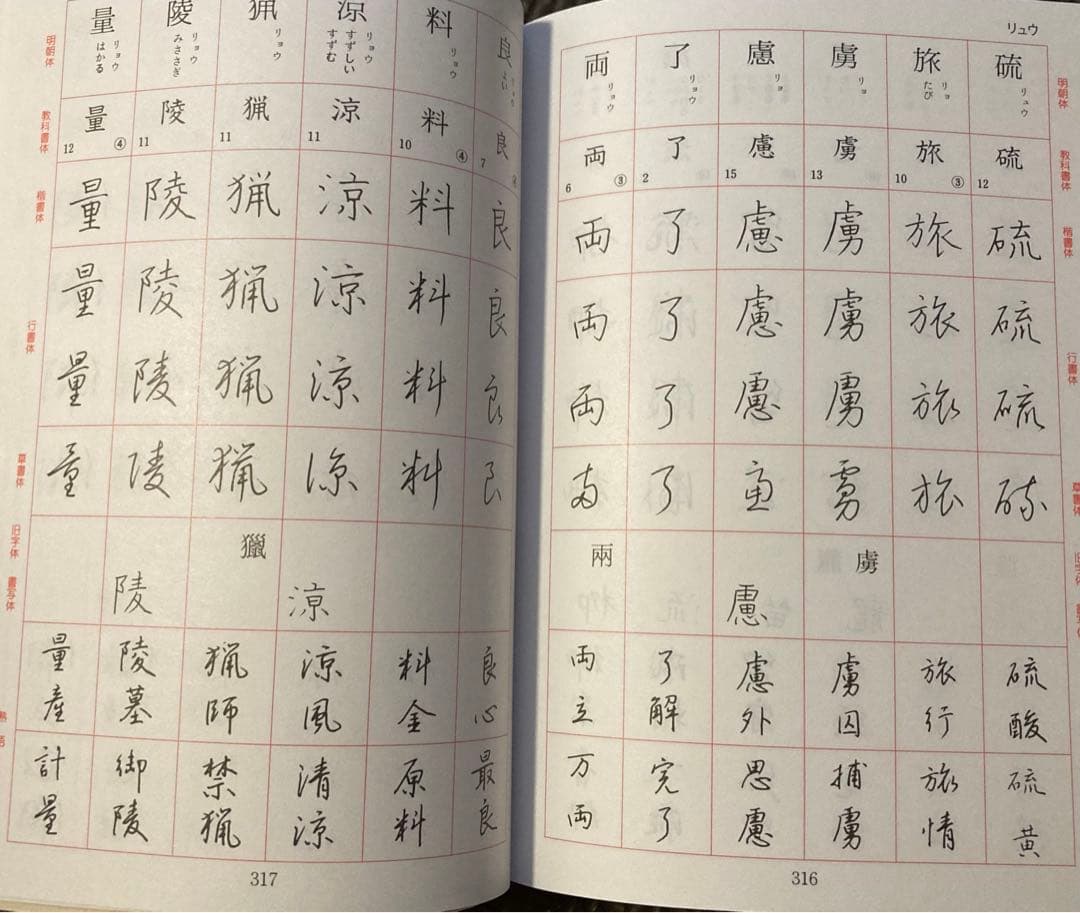 リュウ
明朝体
教科書体
楷書体
行書体
草書体
硫 リュウ
硫
12
硫
硫
硫
硫
硫酸
硫黄
旅 リョ たび
旅
10 ③
旅
旅
旅
旅
旅行
旅情
虜 リョ
虜
13
虜
虜
虜
虜
虜
虜囚
捕虜
慮 リョ
慮
15
慮
慮
慮
慮
慮
慮外
思慮
了 リョウ
了
2
了
了
了
了
了解
完了
両 リョウ
両
6 ③
両
両
両
両
兩
両立
万両
316
良 リョウ よい
良
7 ④
良
良
良
良
良心
最良
料 リョウ
料
10 ④
料
料
料
料
料金
原料
涼 リョウ すずしい すずむ
涼
11
涼
涼
涼
涼
涼
涼風
清涼
猟 リョウ
猟
11
猟
猟
猟
猟
獵
猟師
禁猟
陵 リョウ みささぎ
陵
11
陵
陵
陵
陵
陵
陵墓
御陵
量 リョウ はかる
量
12 ④
量
量
量
量
量産
計量
明朝体
教科書体
楷書体
行書体
草書体
旧字体
書写体
熟語
317